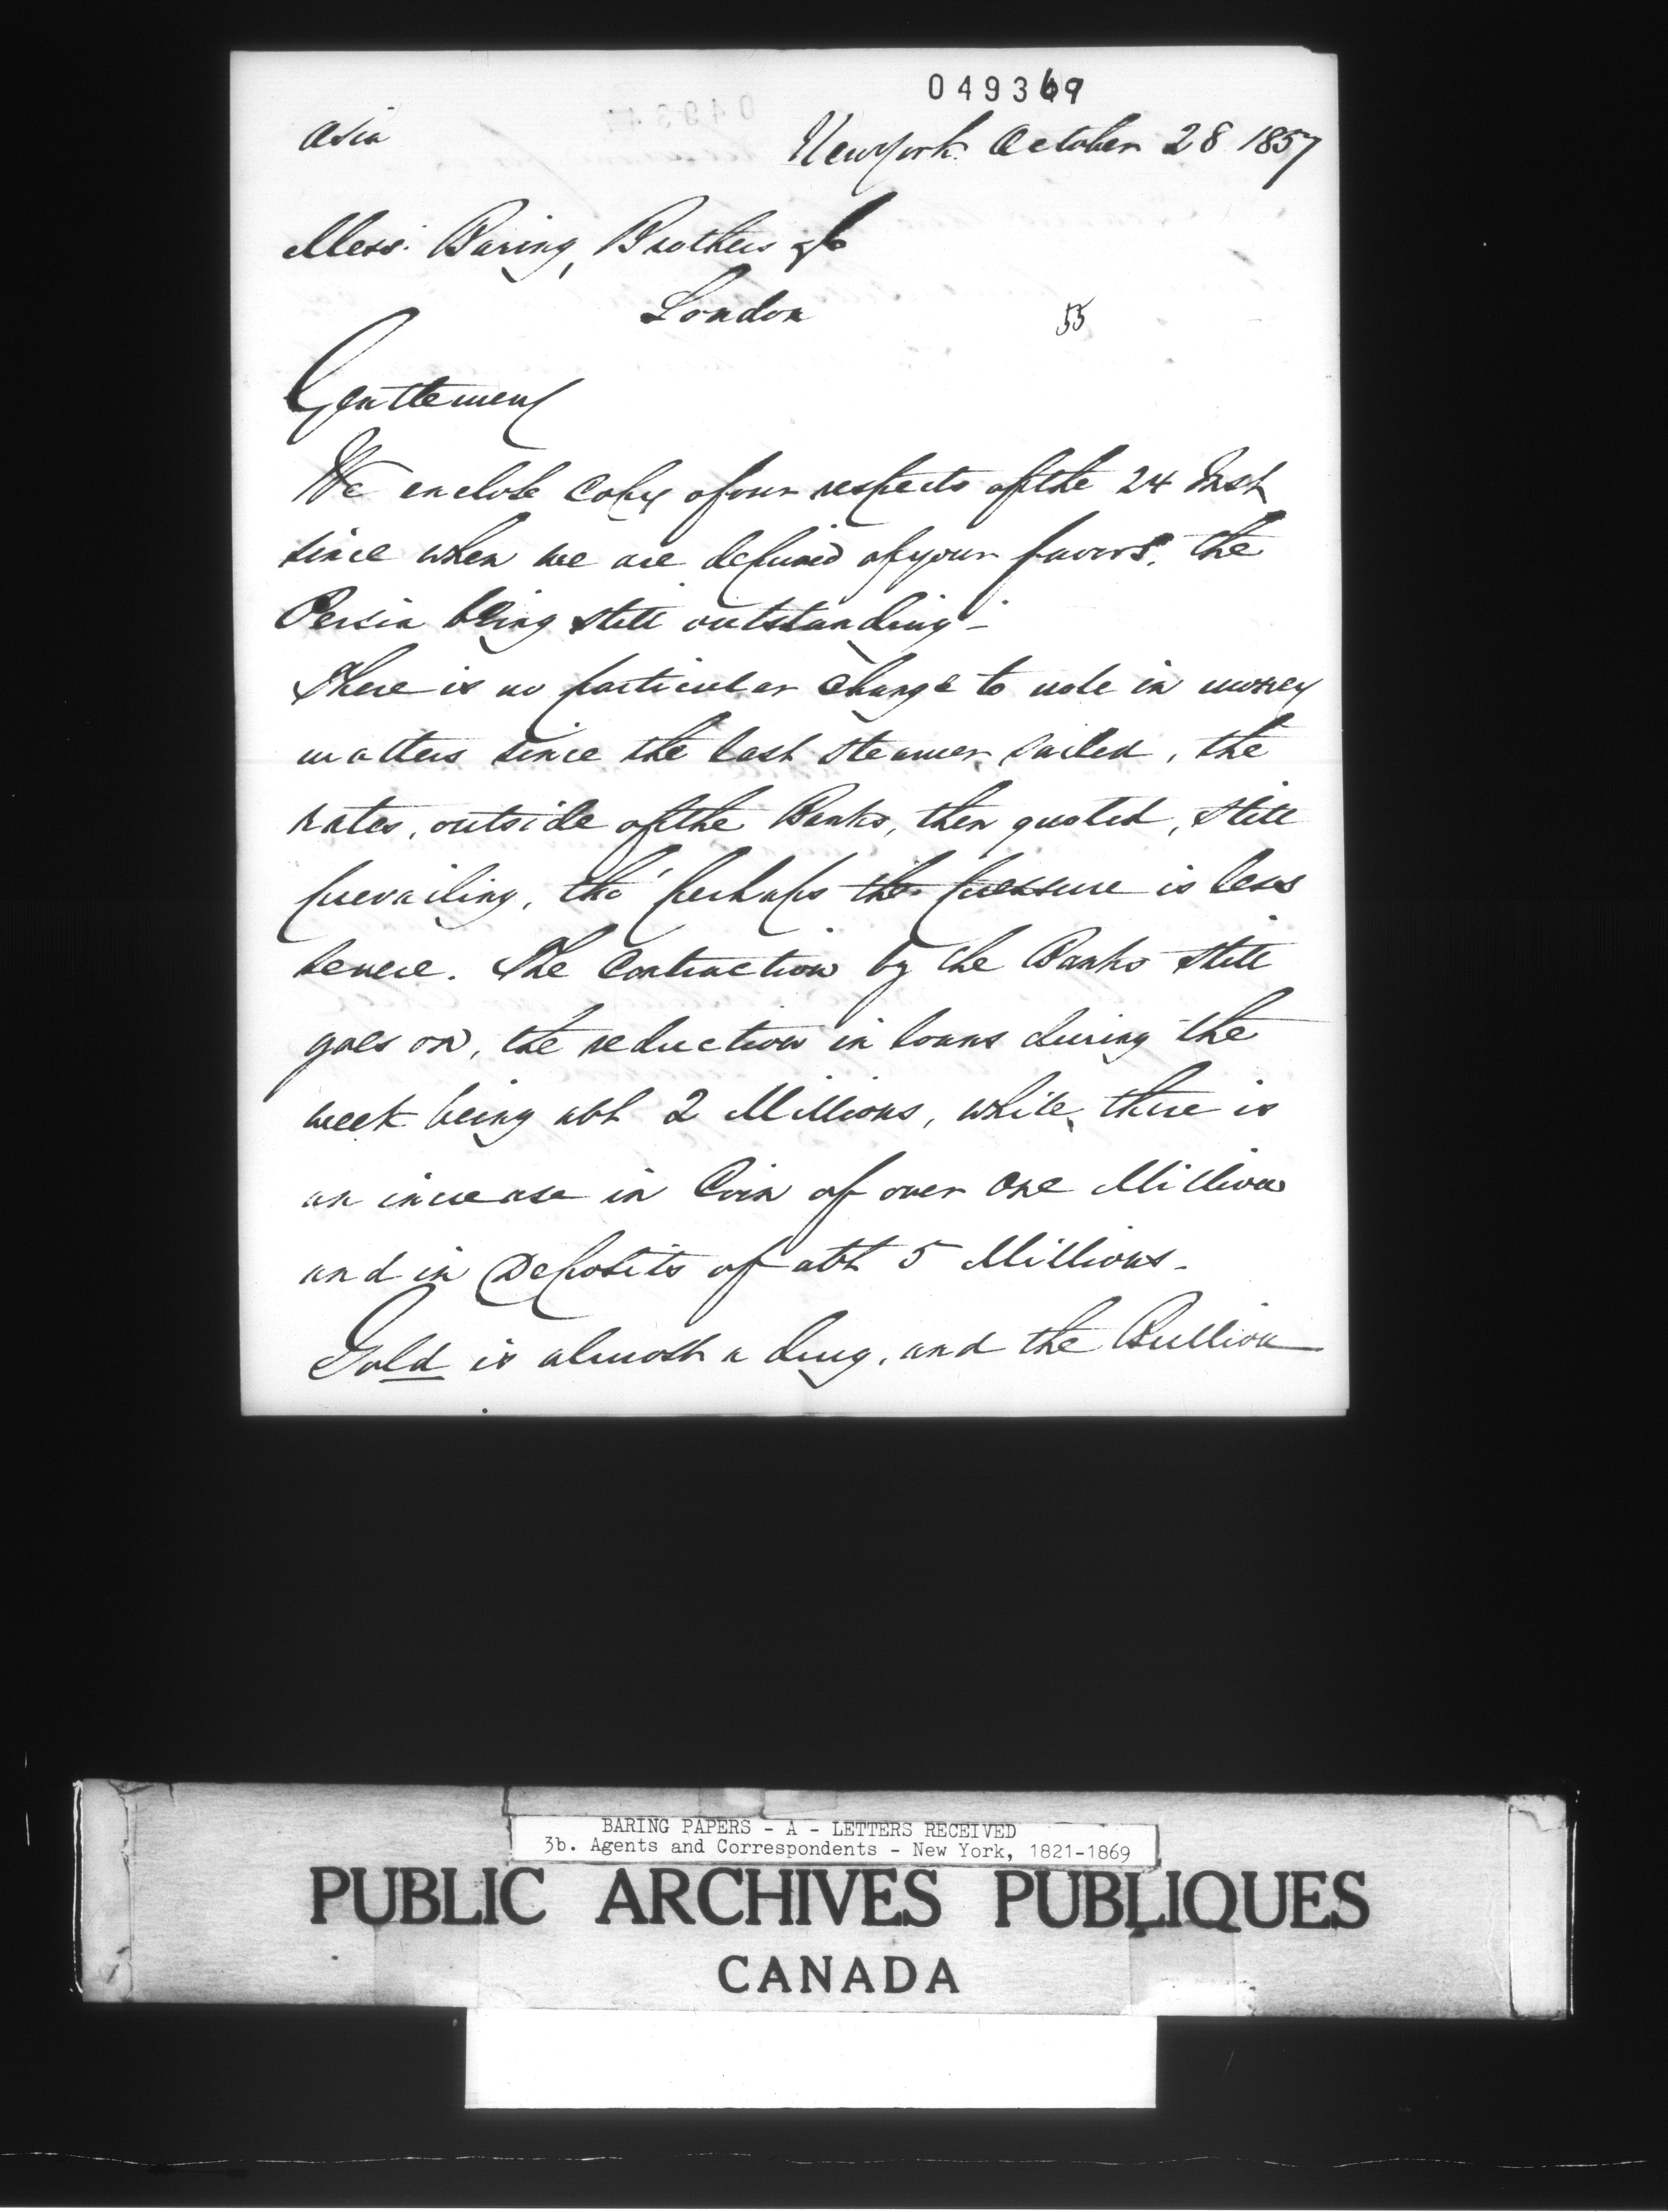 049369
Asia
New York October 28 1857
Mess. Baring, Brothers & Co
London
55
Gentlemen
We enclose Copy of our respects of the 24 Inst
since when we are deprived of your favors, the
Persia being still outstanding -
There is no particular change to note in money
matters since the last steamer sailed, the
rates, outside of the Banks, then quoted, still
prevailing, tho' perhaps the pressure is less
severe. The Contraction by the Banks still
goes on, the reduction in loans during the
week being abt 2 Millions, while, there is
an increase in Coin of over one Million
and in Deposits of abt 5 Millions -
Gold is almost a drug, and the Bullion
BARING PAPERS - A - LETTERS RECEIVED
3b. Agents and Correspondents - New York, 1821-1869
PUBLIC ARCHIVES PUBLIQUES
CANADA